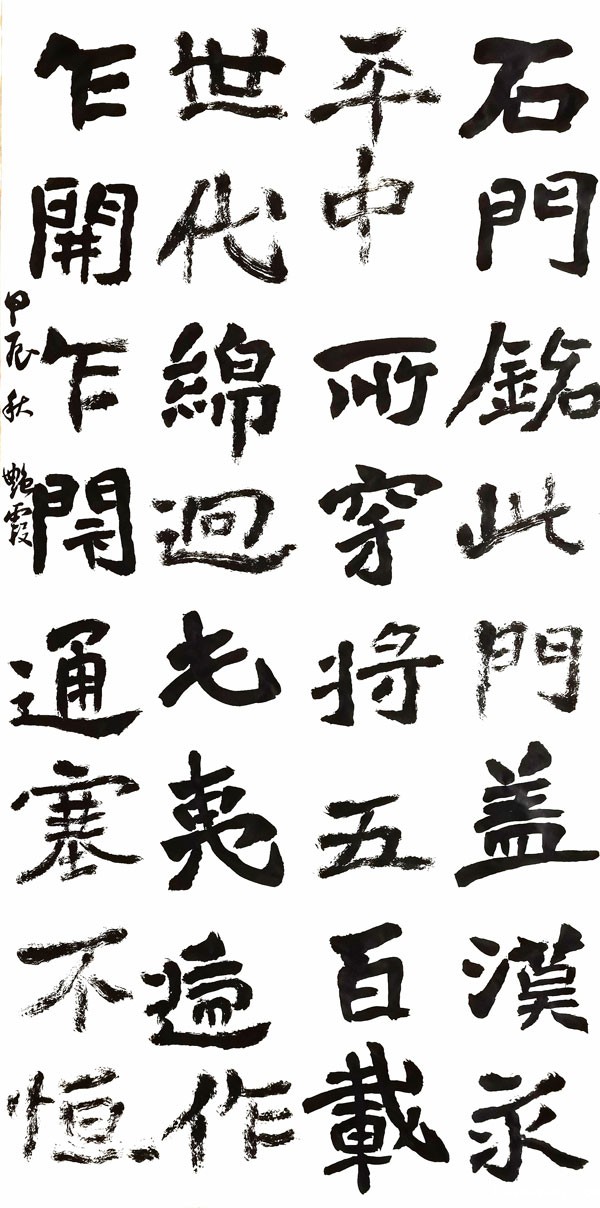 石門銘此門盖漢永
平中所穿將五百載
世代綿迴屯夷遞作
乍開乍閇通塞不恒
甲辰秋 艷霞